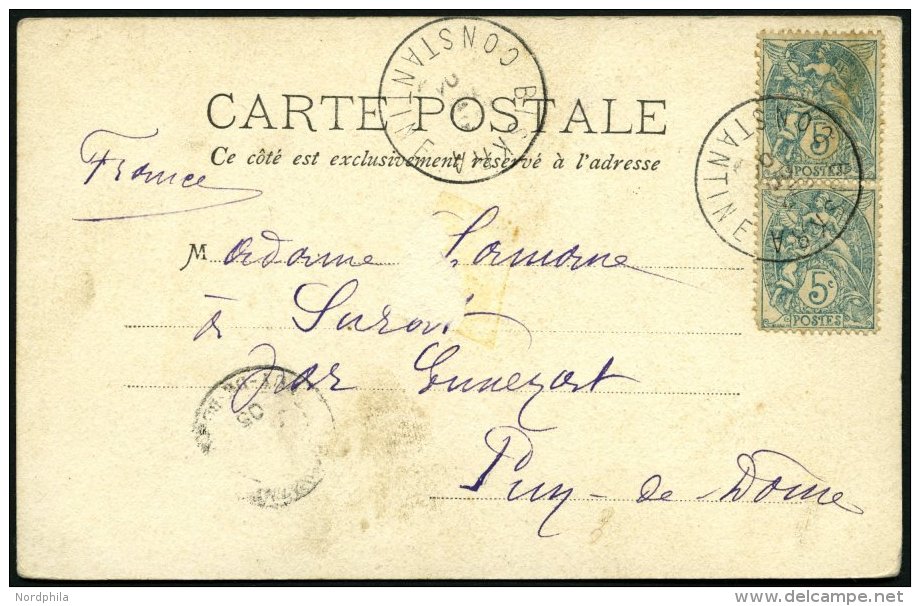 BISKRA
CONSTANTINE
CARTE POSTALE
Ce côté est exclusivement réservé à l'adresse
France
5c
POSTES
BISKRA
CONSTANTINE
5c
POSTES
Madame Lamame
à
par Ennezat
Puy-de Dome
Nordphila
delcampe.net